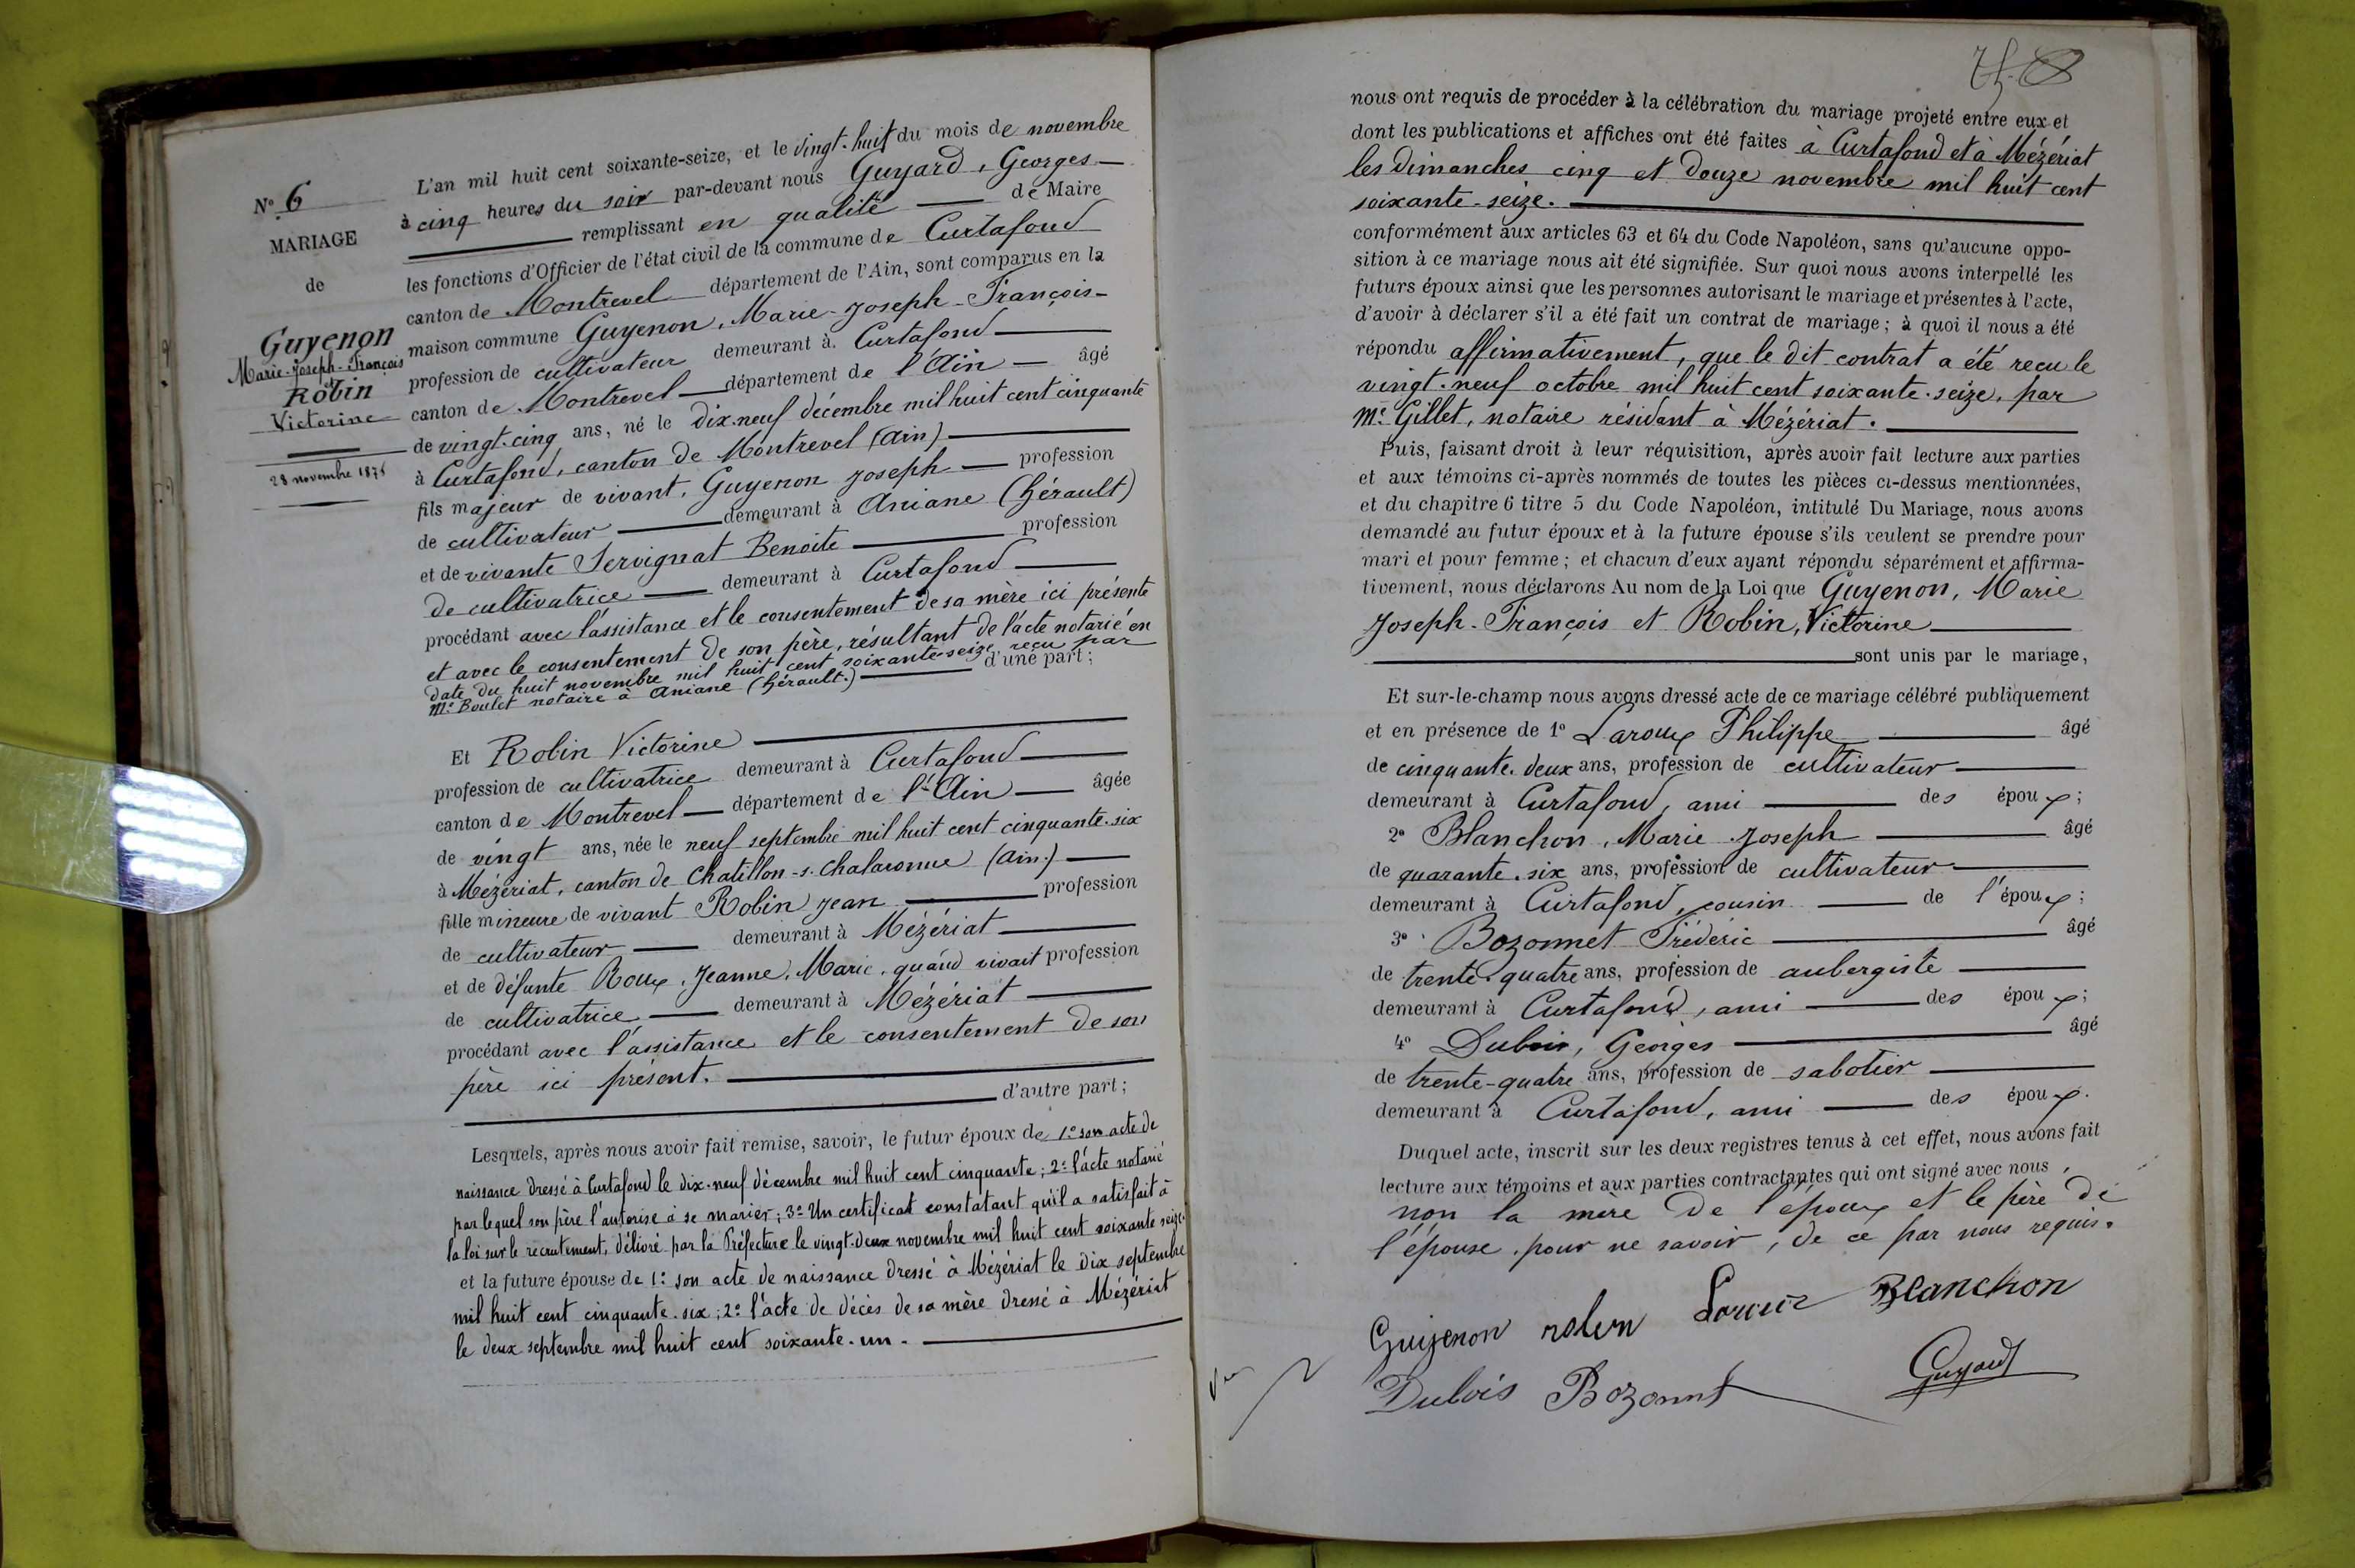 N° 6
MARIAGE
de
Guyenon
Marie-Joseph-François
et
Robin
Victorine
28 novembre 1876
L'an mil huit cent soixante-seize, et le vingt-huit du mois de novembre
à cinq heures du soir par-devant nous Guyard, Georges
remplissant en qualité de Maire
les fonctions d'Officier de l'état civil de la commune de Curtafond
canton de Montrevel département de l'Ain, sont comparus en la
maison commune Guyenon, Marie-Joseph-François
profession de cultivateur demeurant à Curtafond
canton de Montrevel département de l'Ain âgé
de vingt-cinq ans, né le dix-neuf décembre mil huit cent cinquante
à Curtafond, canton de Montrevel (Ain)
fils majeur de vivant, Guyenon Joseph profession
de cultivateur demeurant à Aniane (Hérault)
et de vivante Servignat Benoite profession
de cultivatrice demeurant à Curtafond
procédant avec l'assistance et le consentement de sa mère ici présente
et avec le consentement de son père, résultant de l'acte notarié en
date du huit novembre mil huit cent soixante-seize, reçu par
Me Boulet notaire à Aniane (Hérault.) d'une part;
Et Robin Victorine
profession de cultivatrice demeurant à Curtafond
canton de Montrevel département de l'Ain âgée
de vingt ans, née le neuf septembre mil huit cent cinquante-six
à Mézériat, canton de Chatillon-s-Chalaronne (Ain.)
fille mineure de vivant Robin Jean profession
de cultivateur demeurant à Mézériat
et de défunte Roux, Jeanne, Marie, quand vivait profession
de cultivatrice demeurant à Mézériat
procédant avec l'assistance et le consentement de son
père ici présent.
d'autre part;
Lesquels, après nous avoir fait remise, savoir, le futur époux de 1° son acte de
naissance dressé à Curtafond le dix-neuf décembre mil huit cent cinquante; 2° l'acte notarié
par lequel son père l'autorise à se marier; 3° Un certificat constatant qu'il a satisfait à
la loi sur le recrutement, délivré par la Préfecture le vingt-deux novembre mil huit cent soixante seize.
et la future épouse de 1° son acte de naissance dressé à Mézériat le dix septembre
mil huit cent cinquante-six; 2° l'acte de décès de sa mère dressé à Mézériat
le deux septembre mil huit cent soixante-un.
nous ont requis de procéder à la célébration du mariage projeté entre eux et
dont les publications et affiches ont été faites à Curtafond et à Mézériat
les dimanches cinq et douze novembre mil huit cent
soixante-seize.
conformément aux articles 63 et 64 du Code Napoléon, sans qu'aucune oppo-
sition à ce mariage nous ait été signifiée. Sur quoi nous avons interpellé les
futurs époux ainsi que les personnes autorisant le mariage et présentes à l'acte,
d'avoir à déclarer s'il a été fait un contrat de mariage; à quoi il nous a été
répondu affirmativement, que le dit contrat a été reçu le
vingt-neuf octobre mil huit cent soixante-seize, par
Me Gillet, notaire résidant à Mézériat.
Puis, faisant droit à leur réquisition, après avoir fait lecture aux parties
et aux témoins ci-après nommés de toutes les pièces ci-dessus mentionnées,
et du chapitre 6 titre 5 du Code Napoléon, intitulé Du Mariage, nous avons
demandé au futur époux et à la future épouse s'ils veulent se prendre pour
mari et pour femme; et chacun d'eux ayant répondu séparément et affirma-
tivement, nous déclarons Au nom de la Loi que Guyenon, Marie
Joseph-François et Robin, Victorine
sont unis par le mariage,
Et sur-le-champ nous avons dressé acte de ce mariage célébré publiquement
et en présence de 1° Laroux Philippe âgé
de cinquante-deux ans, profession de cultivateur
demeurant à Curtafond, ami des époux;
2° Blanchon, Marie Joseph âgé
de quarante-six ans, profession de cultivateur
demeurant à Curtafond, cousin de l'époux;
3° Bozonnet Fréderic âgé
de trente-quatre ans, profession de aubergiste
demeurant à Curtafond, ami des époux;
4° Dubois, Georges âgé
de trente-quatre ans, profession de sabotier
demeurant à Curtafond, ami des époux.
Duquel acte, inscrit sur les deux registres tenus à cet effet, nous avons fait
lecture aux témoins et aux parties contractantes qui ont signé avec nous,
non la mère de l'époux et le père de
l'épouse, pour ne savoir, de ce par nous requis.
Guyenon robin Blanchon
Dubois Bozonnet Guyard